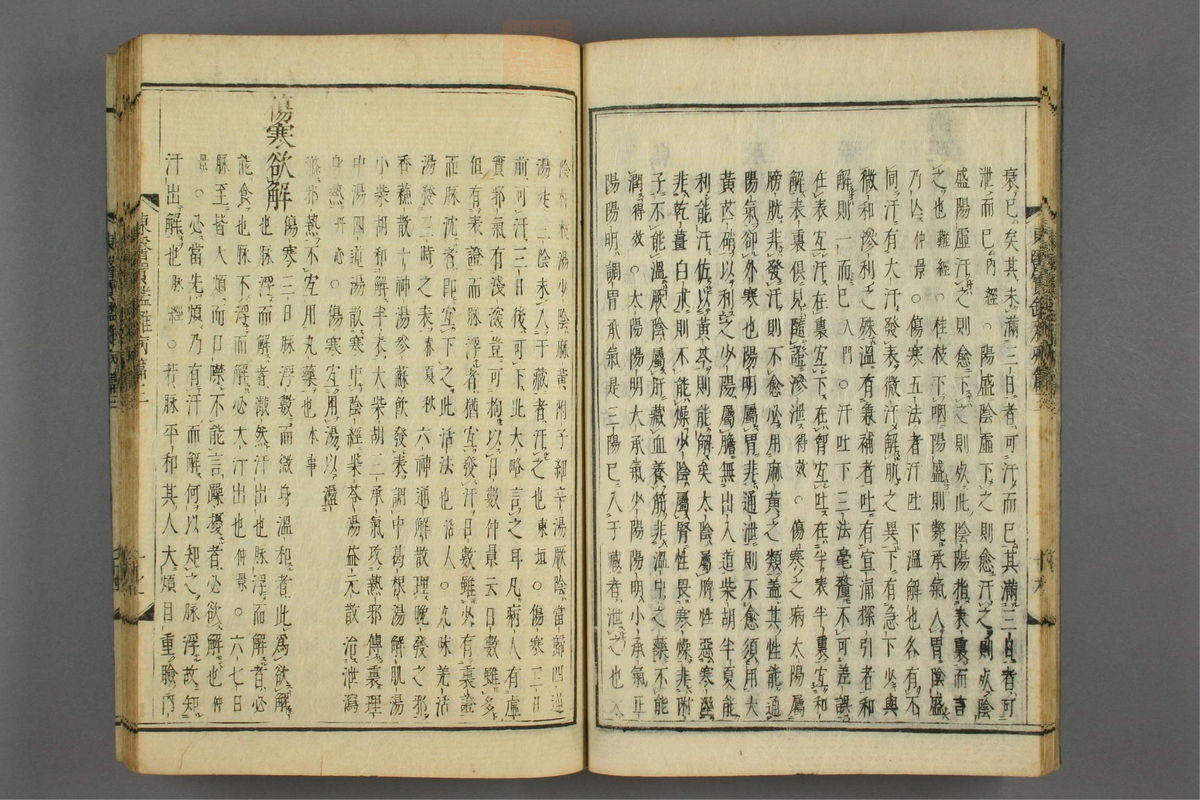 衰已矣其未滿三日者可汗而已其滿三日者可
泄而已內經○陽盛陰虛下之則愈汗之則死陰
盛陽虛汗之則愈下之則死此陰陽指表裏而言
之也難經○桂枝下咽陽盛則斃承氣入胃陰盛
乃亡仲景○傷寒五法者汗吐下溫解也各有不
同汗有大汗發表微汗解肌之異下有急下少與
微和滲利之殊溫有兼補者吐有宣涌探引者和
解則一而已入門○汗吐下三法毫釐不可差誤
在表宜汗在裏宜下在胷宜吐在半表半裏宜和
解表裏俱見隨證滲泄得效○傷寒之病太陽屬
膀胱非發汗則不愈必用麻黃之類盖其性能通
陽氣却外寒也陽明屬胃非通泄則不愈須用大
黃芒硝以利之少陽屬膽無出入道柴胡半夏能
利能汗佐以黃芩則能解矣太陰屬脾性惡寒濕
非乾薑白朮則不能燥少陰屬腎性畏寒燥非附
子不能溫厥陰屬肝藏血養筋非溫平之藥不能
潤得效○太陽陽明大承氣少陽陽明小承氣正
陽陽明調胃承氣是三陽已入于藏者泄之也太
陰桂枝湯少陰麻黃附子細辛湯厥陰當歸四逆
湯是三陰未入于藏者汗之也東垣○傷寒三日
前可汗三日後可下此大略言之耳凡病人有虛
實邪氣有淺深豈可拘以日數仲景云日數雖多
但有表證而脉浮者猶宜發汗日數雖少有裏證
而脉沈者即宜下之此活法也活人○九味羌活
湯發三時之表春夏秋六神通解散理晚發之邪
香蘇散十神湯參蘇飮發表調中葛根湯解肌湯
小柴胡和解半表大柴胡三承氣攻熱邪傳裏理
中湯四逆湯散寒中陰經柴苓湯益元散治泄瀉
身熱丹心○傷寒宜用湯以盪
滌邪熱不宜用丸藥也本事
傷寒欲解
傷寒三日脉浮數而微身溫和者此爲欲解
也脉浮而解者濈然汗出也脉浮而解者必
能食也脉不浮而解必大汗出也仲景○六七日
脉至皆大煩而口噤不能言躁擾者必欲解也仲
景○必當先煩乃有汗而解何以知之脉浮故知
汗出解也脉經○若脉平和其人大煩目重瞼內